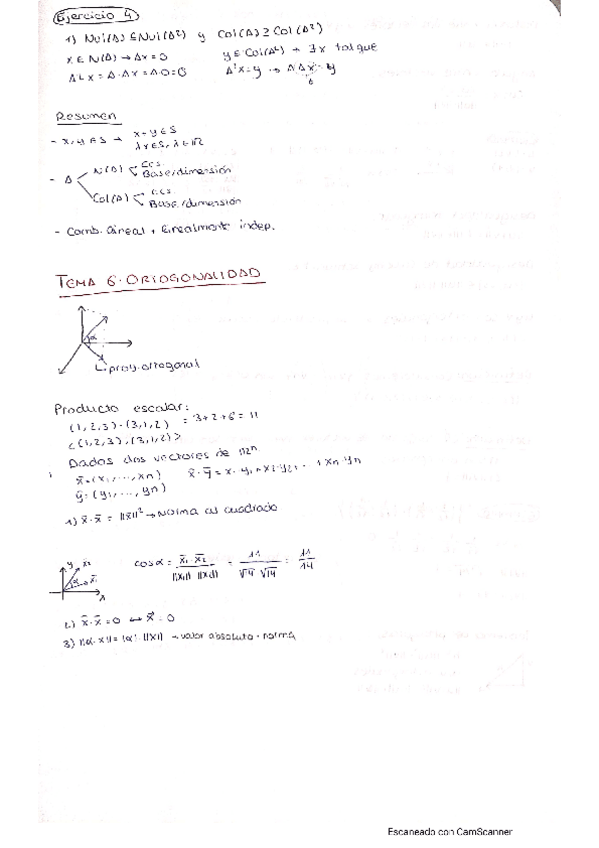 Ejercicio 4
1) Nul(A) ⊆ Nul(A²) y Col(A) ⊇ Col(A²)
x ∈ N(A) → Ax = 0
y ∈ Col(A²) → ∃x tal que
A²x = A·Ax = A·0 = 0
A²x = y → A(Ax) = y
Resumen
- x, y ∈ S → x+y ∈ S
λx ∈ S, λ ∈ ℝ
- A
N(A) Ecs.
Base/dimensión
Col(A) Ecs.
Base/dimensión
- Comb. lineal + linealmente indep.
TEMA 6. ORTOGONALIDAD
α
proy. ortogonal
Producto escalar:
(1,2,3)·(3,1,2) = 3+2+6 = 11
<(1,2,3),(3,1,2)>
Dados dos vectores de ℝⁿ
x̄ = (x₁,...,xn)
ȳ = (y₁,...,yn)
x̄·ȳ = x₁·y₁+x₂·y₂+...+xn·yn
1) x̄·x̄ = ||x̄||² → Norma al cuadrado
y x̄₂
α x̄₁
cos α = x̄₁·x̄₂ / ||x₁|| ||x₂|| = 11 / √14·√14 = 11/14
2) x̄·x̄ = 0 ↔ x̄ = 0
3) ||α·x|| = |α|·||x|| → valor absoluto · norma
Escaneado con CamScanner